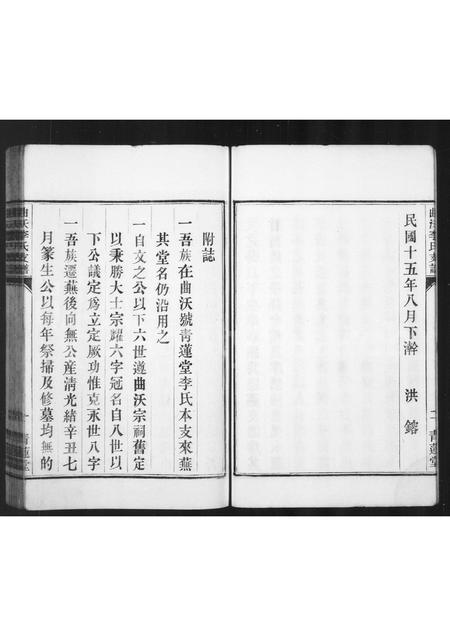 曲沃李氏支譜
民國十五年八月下澣 洪鎔
二 青蓮堂
附誌
一吾族在曲沃號青蓮堂李氏本支來燕
其堂名仍沿用之
一自文之公以下六世遵曲沃宗祠舊定
以秉勝大士宗耀六字冠名自八世以
下公議定爲立定厥功惟克永世八字
一吾族遷燕後向無公產清光緒辛丑七
月篆生公以每年祭掃及修墓均無的
曲沃李氏支譜
一 青蓮堂